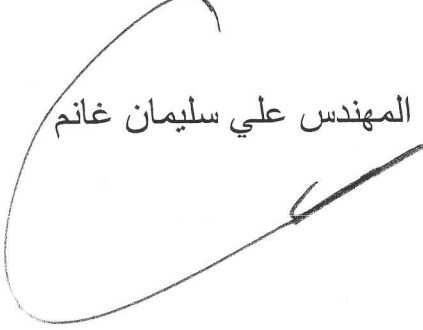 المهندس علي سليمان غانم